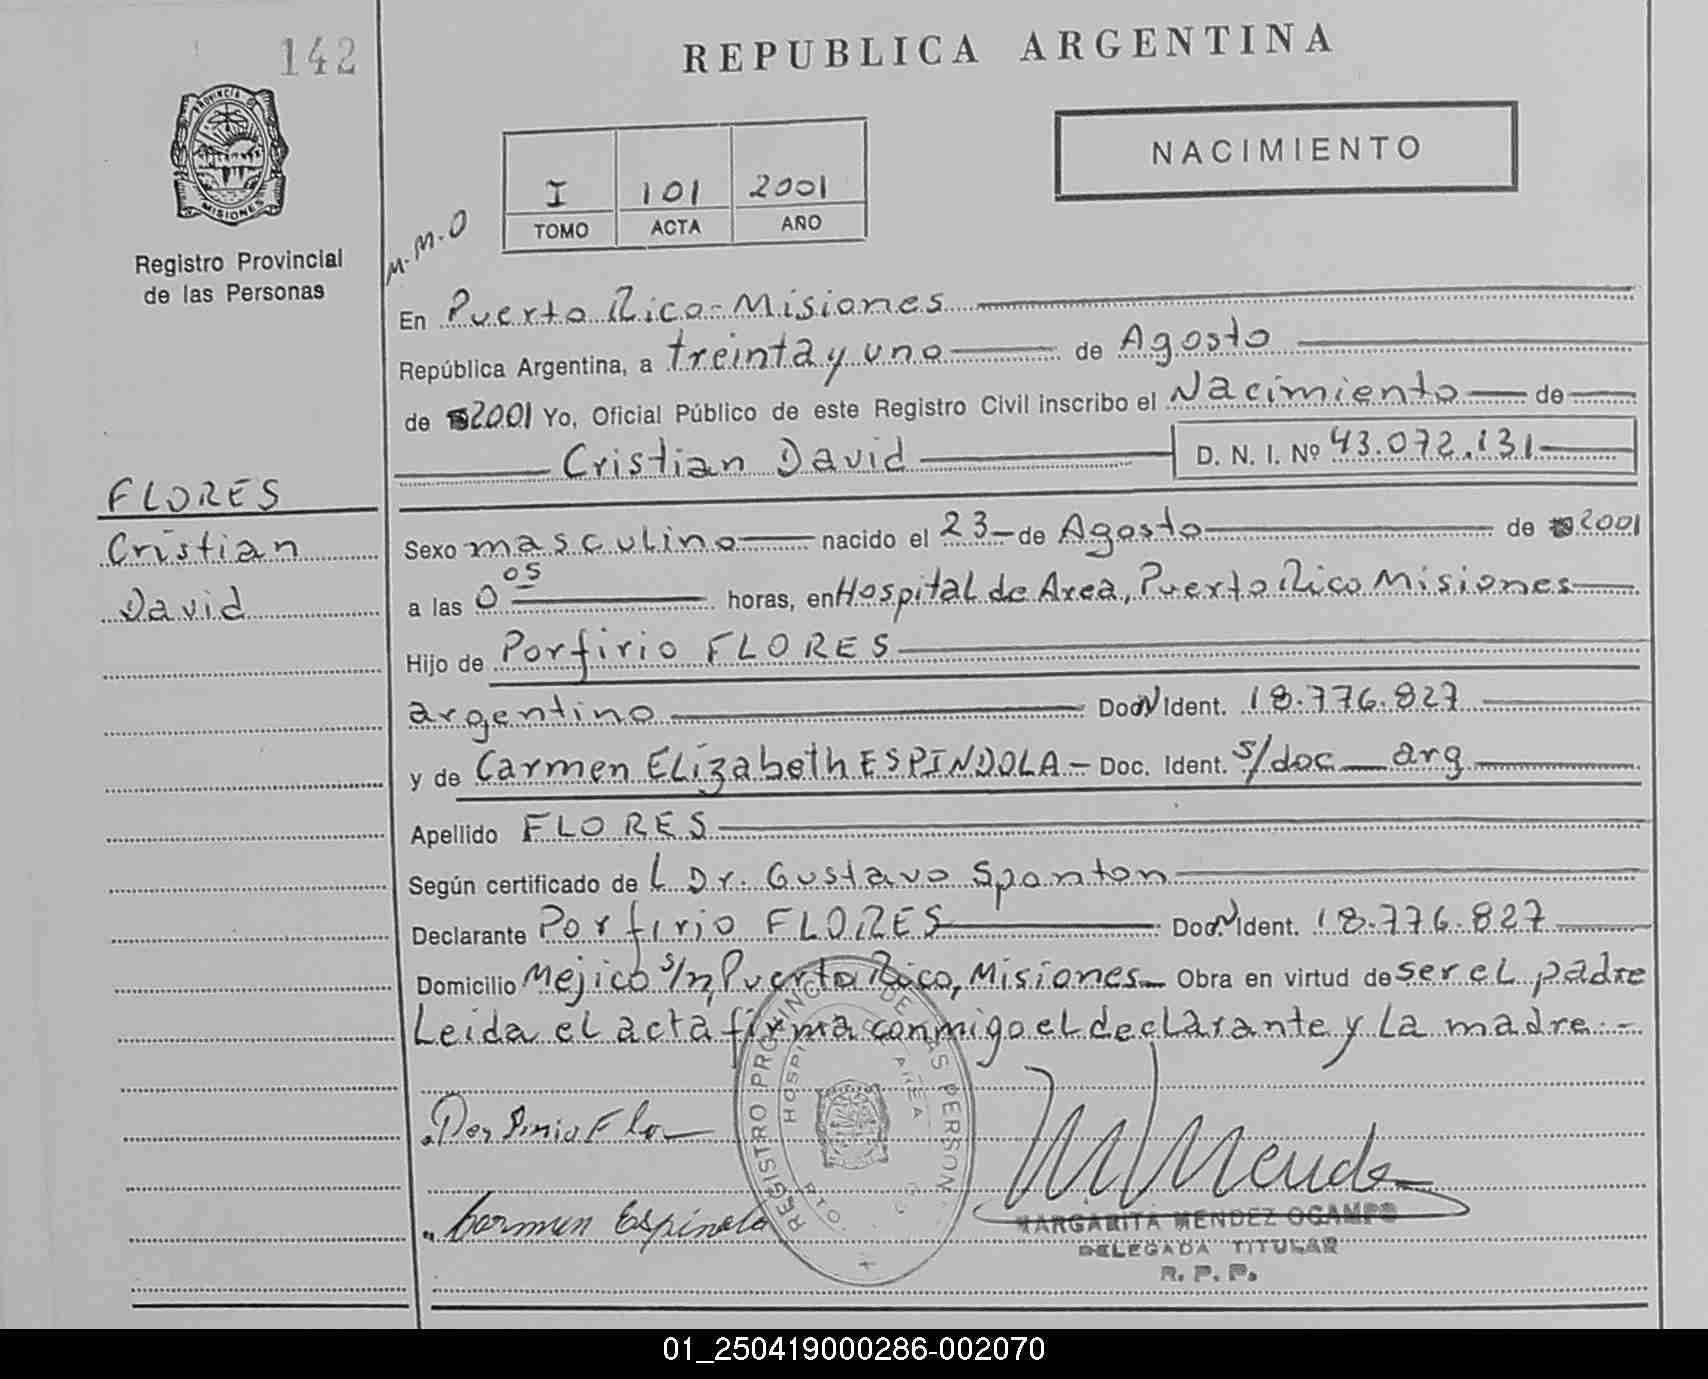 142
REPUBLICA ARGENTINA
PROVINCIA DE
MISIONES
Registro Provincial
de las Personas
NACIMIENTO
I 101 2001
TOMO ACTA AÑO
M.M.O
En Puerto Rico-Misiones
República Argentina, a treinta y uno de Agosto
de 2001 Yo, Oficial Público de este Registro Civil inscribo el Nacimiento de
Cristian David D. N. I. Nº 43.072.131
FLORES
Cristian
David
Sexo masculino nacido el 23 de Agosto de 2001
a las 0 05 horas, en Hospital de Area, Puerto Rico Misiones
Hijo de Porfirio FLORES
argentino Doc. Ident. 18.776.827
y de Carmen Elizabeth ESPINDOLA - Doc. Ident. s/doc arg
Apellido FLORES
Según certificado de L Dr. Gustavo Sponton
Declarante Porfirio FLORES Doc. Ident. 18.776.827
Domicilio Mejico s/n, Puerto Rico, Misiones Obra en virtud de ser el padre
Leida el acta firma conmigo el declarante y La madre.-
Porfirio Flo
Carmen Espinola
REGISTRO PROVINC DE AS PERSON
HOSPI AREA
RTO
MMendez
MARGARITA MENDEZ OCAMPO
DELEGADA TITULAR
R. P. P.
01_250419000286-002070